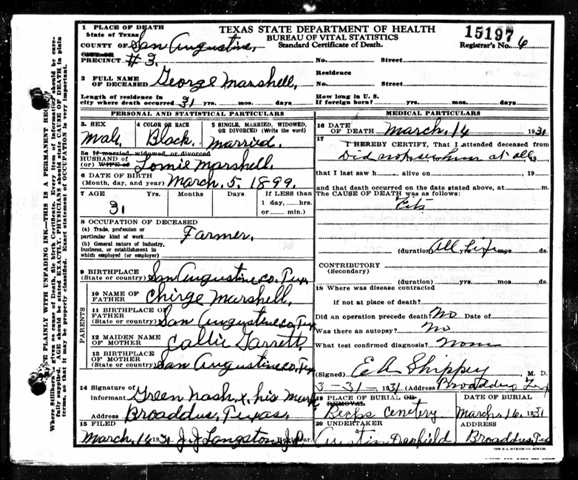 TEXAS STATE DEPARTMENT OF HEALTH
BUREAU OF VITAL STATISTICS
Standard Certificate of Death.
15197
Registrar's No. 6
1 PLACE OF DEATH
State of Texas
COUNTY OF San Augustine,
PRECINCT #3. No. Street
2 FULL NAME OF DECEASED George Marshell,
Residence No. Street
Length of residence in city where death occurred 31 yrs. mos. days
How long in U. S. if foreign born? yrs. mos. days
PERSONAL AND STATISTICAL PARTICULARS
3. SEX Male
4 COLOR OR RACE Black.
5 SINGLE, MARRIED, WIDOWED, OR DIVORCED (Write the word) Married.
5a If married, widowed or divorced
HUSBAND OF (or) WIFE OF Marshell.
6 DATE OF BIRTH (Month, day, and year) March, 5, 1899.
7 AGE Years Months Days If LESS than 1 day, hrs. or min.
31
8 OCCUPATION OF DECEASED
(a) Trade, profession or particular kind of work Farmer.
(b) General nature of Industry, business, or establishment in which employed (or employer)
9 BIRTHPLACE (State or country) San Augustine Co. Tex
PARENTS
10 NAME OF FATHER Marshell,
11 BIRTHPLACE OF FATHER (State or country) San Augustine Co, Tex
12 MAIDEN NAME OF MOTHER Callie Garrett
13 BIRTHPLACE OF MOTHER (State or country) San Augustine Co, Tex
14 Signature of Informant Green Nash, x, his mark
Address Broaddus, Texas,
15 FILED March, 16 1931 J. J. Langston
MEDICAL PARTICULARS
16 DATE OF DEATH March, 16 1931
17 I HEREBY CERTIFY, That I attended deceased from
Did not at all
that I last saw h alive on , 19
and that death occurred on the date stated above, at m.
The CAUSE OF DEATH was as follows:
Fits
(duration) All Life mos ds
CONTRIBUTORY (Secondary)
(duration) yrs mos ds
18 Where was disease contracted if not at place of death?
Did an operation precede death? No
Was there an autopsy? No
What test confirmed diagnosis? None
(Signed) E A Shippey M. D.
3-31-1931 (Address) Broaddus, Tex
19 PLACE OF BURIAL OR REMOVAL DATE OF BURIAL
Cemetery March, 16, 1931
20 UNDERTAKER ADDRESS
Austin Broaddus, Tex